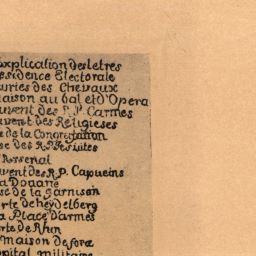 Explication des letres
esidence Electorale
uries des Chevaux
aison au bal et d'Opera
uvent des P.P Carmes
uvent des Religieses
e de la Congretation
se des R.P. Jesuites
Arsenal
vent des R.P. Capucins
a Douane
se de la Garnison
rte de heydelberg
a Place Darmes
rte de Rhin
maison de force
opital militaire